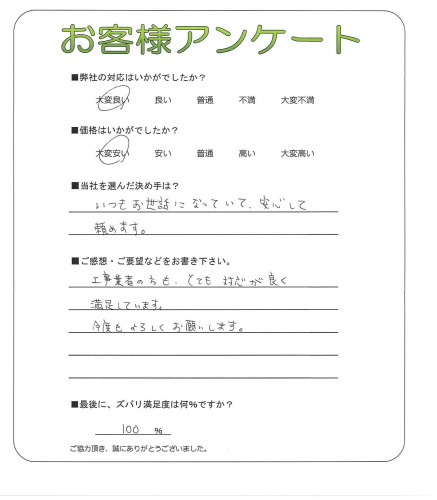 お客様アンケート
■弊社の対応はいかがでしたか？
大変良い 良い 普通 不満 大変不満
■価格はいかがでしたか？
大変安い 安い 普通 高い 大変高い
■当社を選んだ決め手は？
いつもお世話になっていて、安心して
頼めます。
■ご感想・ご要望などをお書き下さい。
工事業者の方も、とても対応が良く
満足しています。
今度もよろしくお願いします。
■最後に、ズバリ満足度は何%ですか？
100 %
ご協力頂き、誠にありがとうございました。